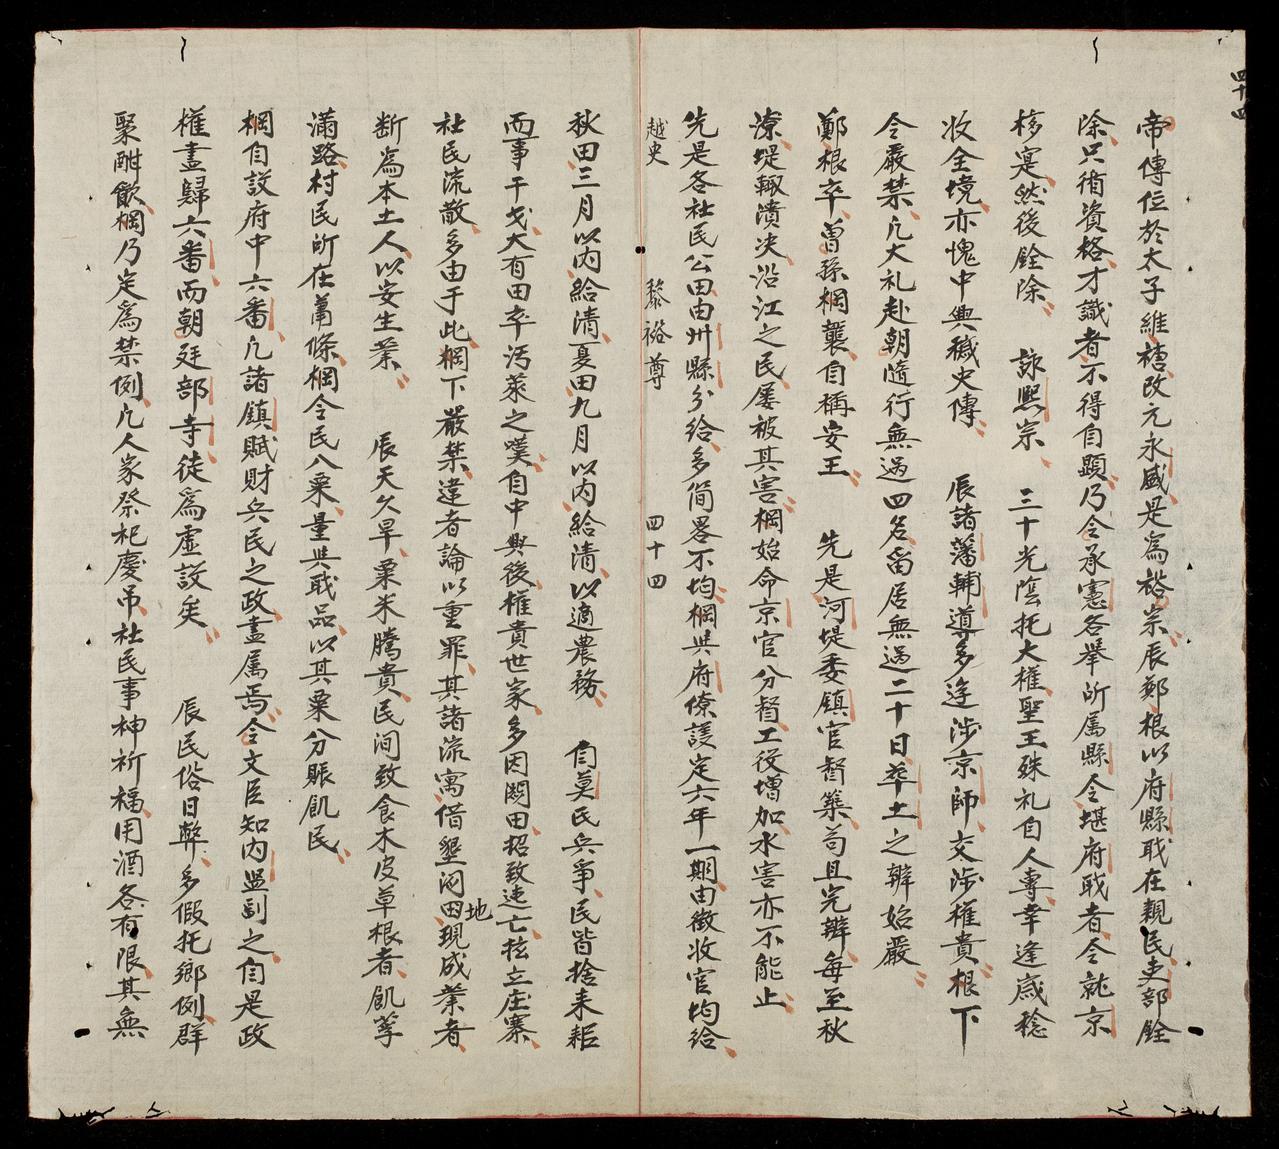 四十四
帝傳位於太子維禟改元永盛是爲裕宗辰鄭根以府縣戝在親民吏部銓
除只循資格才識者不得自顯乃令承憲各舉所属縣令堪府戝者令就京
核寔然後銓除 詠熙宗 三十光陰托大權聖王殊礼自人專幸逢咸稔
收全境亦愧中興穢史傳 辰諸藩輔導多逹涉京師交涉權貴根下
令嚴禁凡大礼赴朝隨行無過四名畱居無過二十日率土之辦始嚴
鄭根卒曾孫棡襲自稱安王 先是河堤委鎮官督築苟且完辦每至秋
潦堤輙潰决沿江之民屡被其害棡始命京官分督工役增加水害亦不能止
先是各社民公田由州縣分給多简畧不均棡與府僚議定六年一期由徵收官均給
越史 黎裕尊 四十四
秋田三月以内給清夏田九月以内給清以適農務 自莫民兵爭民皆捨耒耜
而事干戈大有田卒汚萊之嘆自中興後權貴世家多因闕田招致逃亡抎立庄寨
社民流散多由于此棡下嚴禁違者論以重罪其諸流寓借墾闷田地現成業者
断爲本土人以安生業 辰天久旱粟米騰貴民间致食木皮草根者飢莩
滿路村民所在蕭條棡令民入粟量與戝品以其粟分賑飢民
棡自設府中六番凡諸鎮賦財兵民之政盡属焉令文臣知内监副之自是政
權盡歸六番而朝廷部寺徒爲虚設矣 辰民俗日弊多假托鄉例群
聚酣飮棡乃定爲禁例凡人家祭祀慶吊社民事神祈福用酒各有限其無